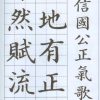 信國公正氣歌
地有正
然賦流